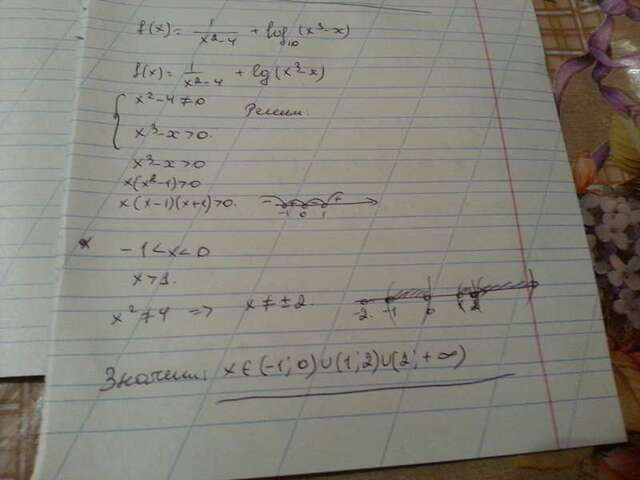 f(x) = 1/(x²-4) + log₁₀(x³-x)
f(x) = 1/(x²-4) + lg(x³-x)
{ x²-4≠0
x³-x>0. Решим.
x³-x>0
x(x²-1)>0
x(x-1)(x+1)>0. - -1 0 1 +
-1<x<0
x>1.
x²≠4 => x≠±2. -2 -1 0 1 2
Значит: x∈(-1;0)∪(1;2)∪(2;+∞)